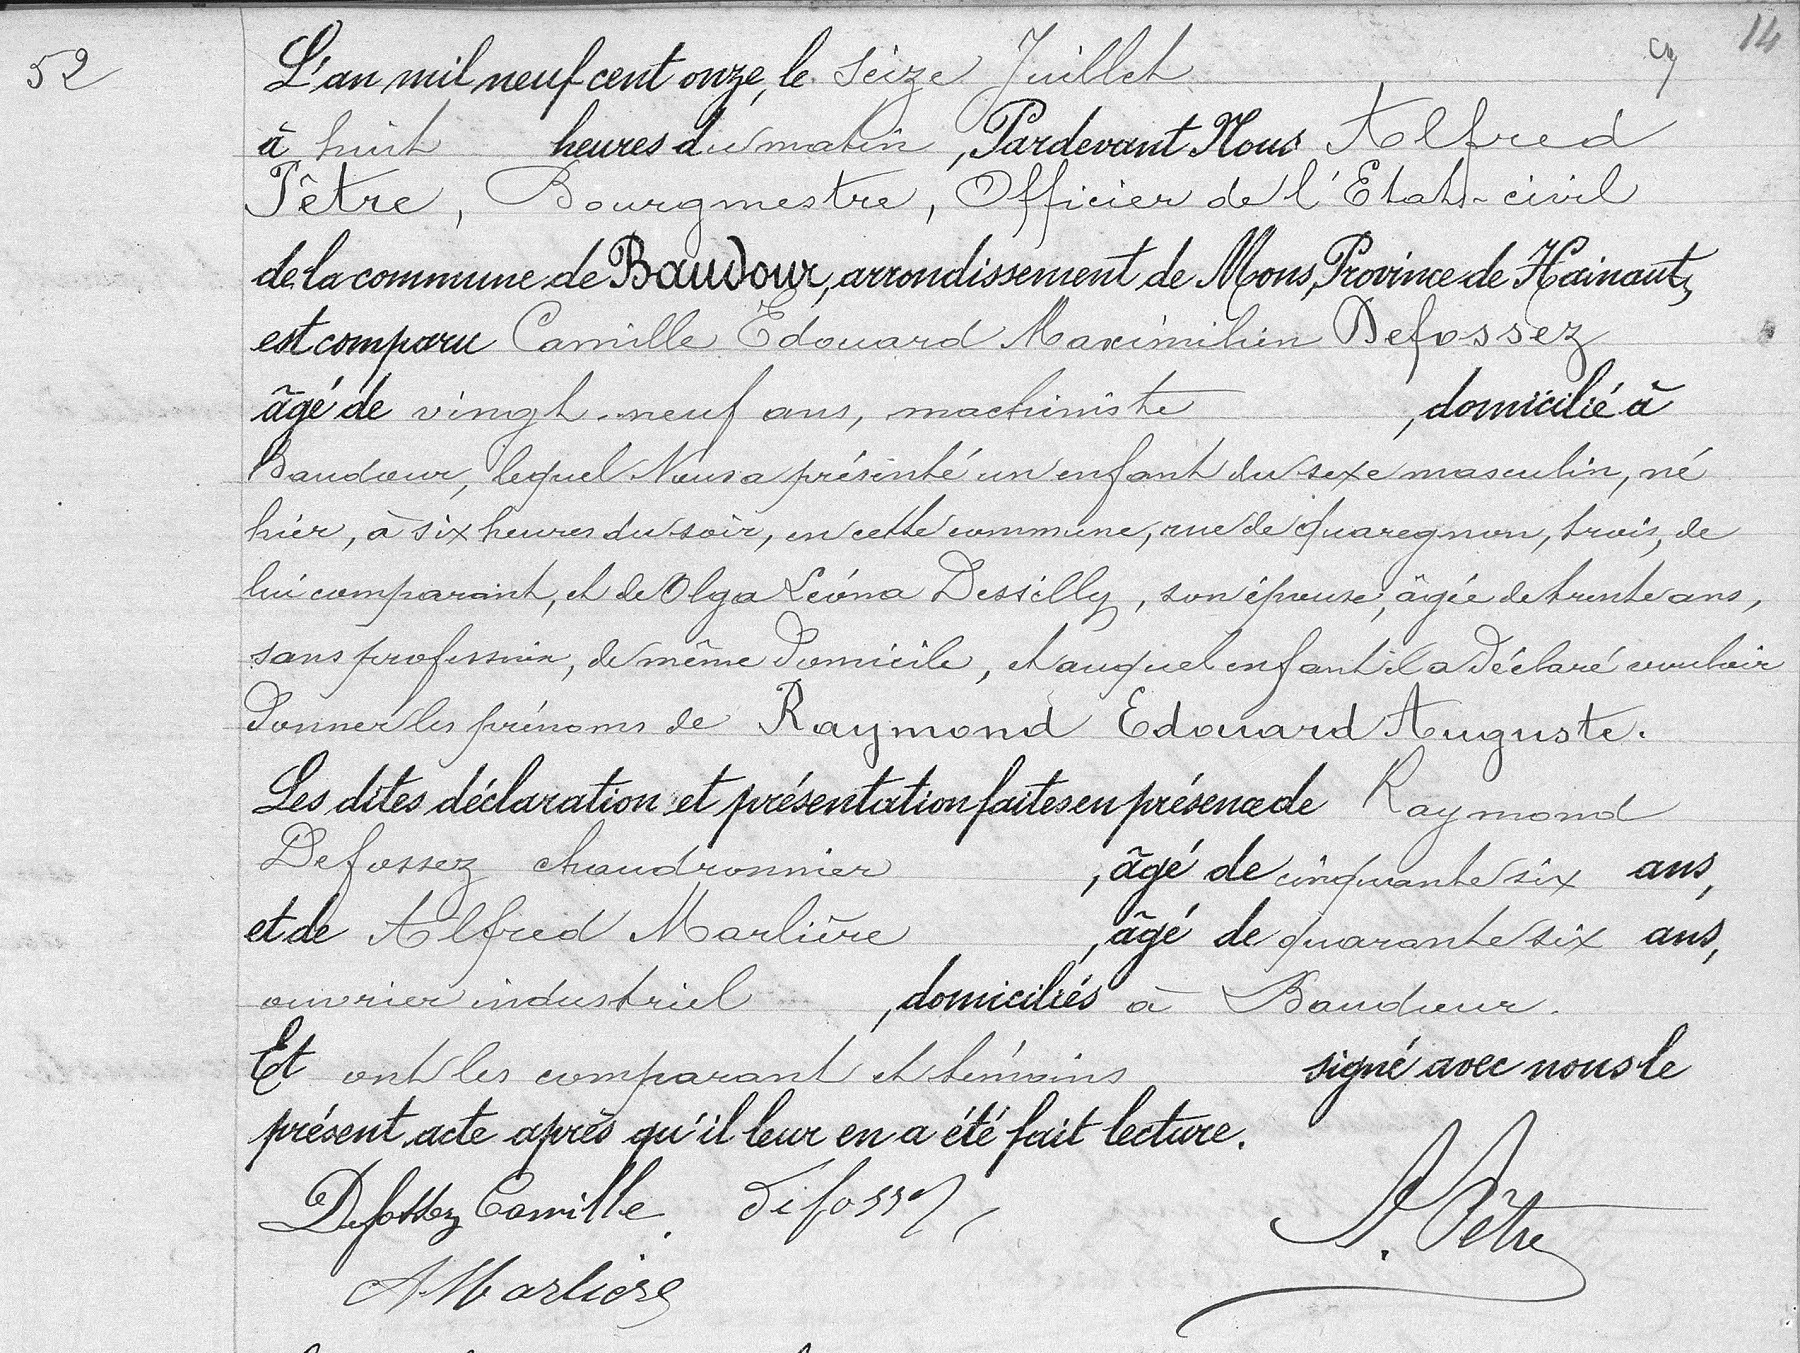 14
52
L'an mil neuf cent onze, le seize Juillet
à huit heures du matin, Pardevant Nous Alfred
Pêtre, Bourgmestre, Officier de l'Etat-civil
de la commune de Baudour, arrondissement de Mons, Province de Hainaut,
est comparu Camille Edouard Maximilien Defossez
âgé de vingt-neuf ans, machiniste, domicilié à
Baudour, lequel Nous a présenté un enfant du sexe masculin, né
hier, à six heures du soir, en cette commune, rue de Quaregnon, trois, de
lui comparant, et de Olga Léona Dessilly, son épouse, âgée de trente ans,
sans profession, de même domicile, et auquel enfant il a déclaré vouloir
donner les prénoms de Raymond Edouard Auguste.
Les dites déclaration et présentation faites en présence de Raymond
Defossez chaudronnier, âgé de cinquante six ans,
et de Alfred Marlière, âgé de quarante six ans,
ouvrier industriel, domiciliés à Baudour.
Et ont les comparant et témoins signé avec nous le
présent acte après qu'il leur en a été fait lecture.
Defossez Camille. Defossez A. Pêtre
A Marlière